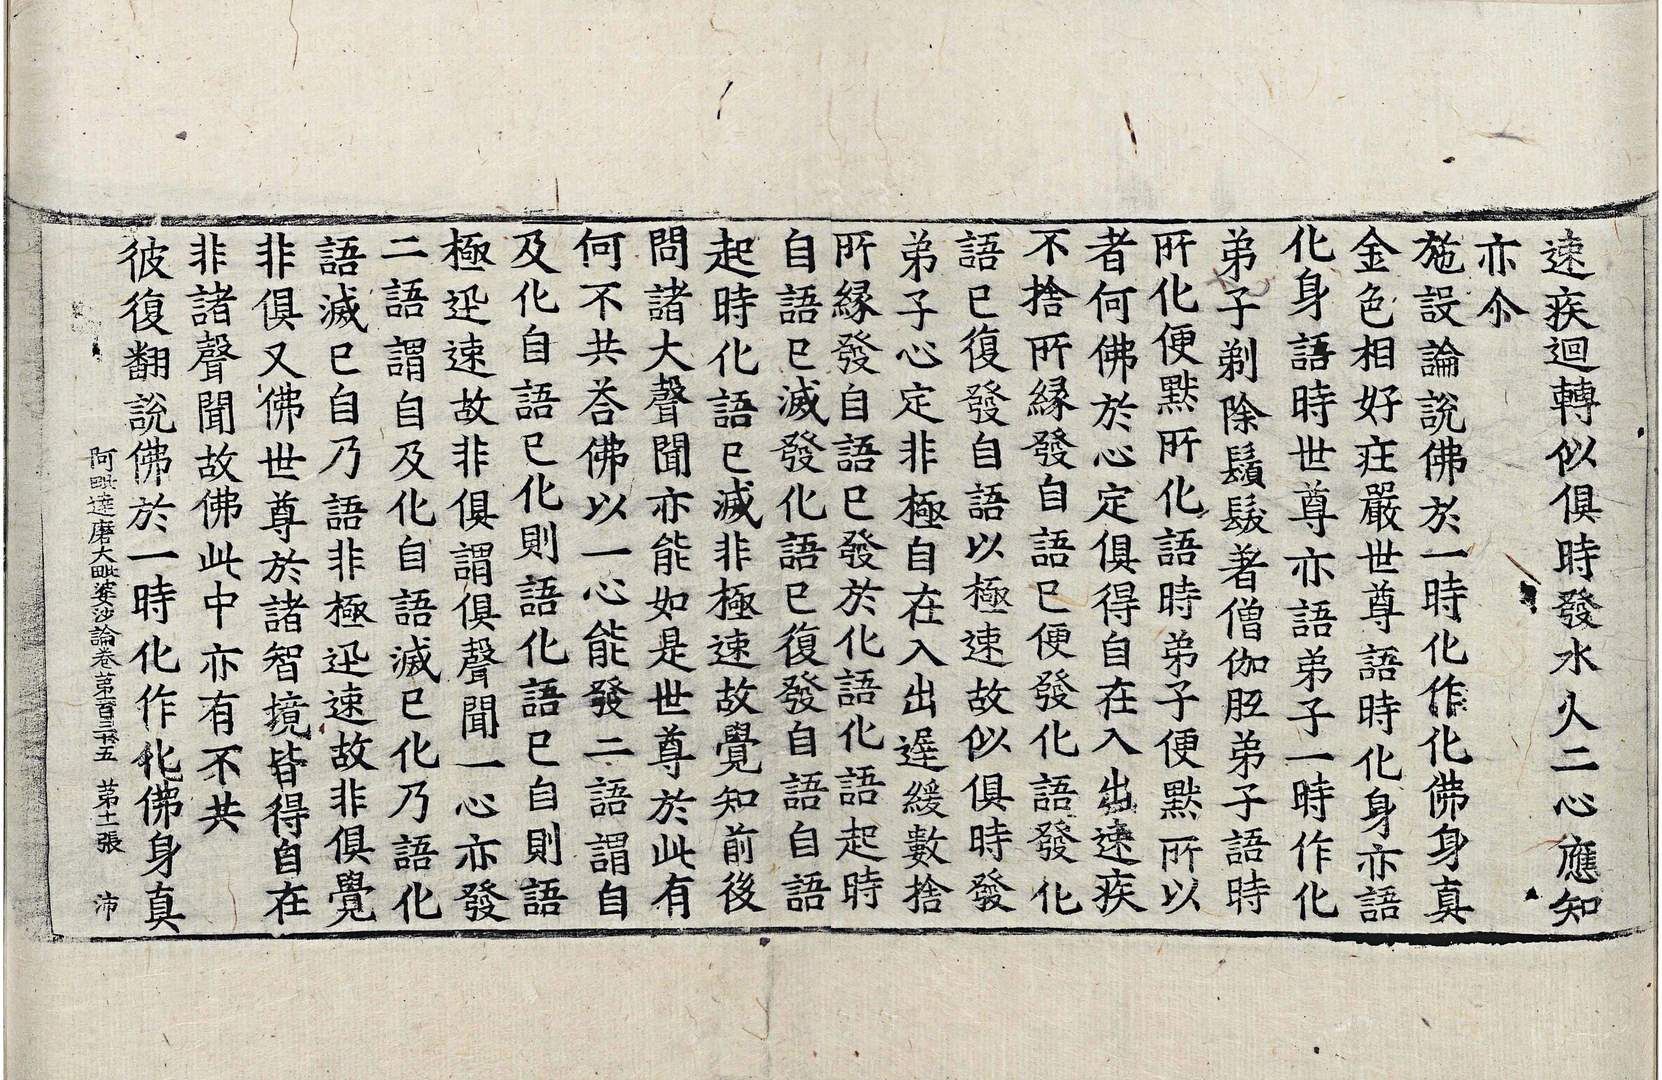 速疾迴轉似俱時發水火二心應知
亦尒
施設論說佛於一時化作化佛身真
金色相好庄嚴世尊語時化身亦語
化身語時世尊亦語弟子一時作化
弟子剃除鬚髮著僧伽胝弟子語時
所化便黙所化語時弟子便黙所以
者何佛於心定俱得自在入出速疾
不捨所緣發自語已便發化語發化
語已復發自語以極速故似俱時發
弟子心定非極自在入出遅緩數捨
所緣發自語已發於化語化語起時
自語已滅發化語已復發自語自語
起時化語已滅非極速故覺知前後
問諸大聲聞亦能如是世尊於此有
何不共荅佛以一心能發二語謂自
及化自語已化則語化語已自則語
極迅速故非俱謂俱聲聞一心亦發
二語謂自及化自語滅已化乃語化
語滅已自乃語非極迅速故非俱覺
非俱又佛世尊於諸智境皆得自在
非諸聲聞故佛此中亦有不共
彼復翻說佛於一時化作化佛身真
阿毗達磨大毗婆沙論卷苐一百三十五 苐十一張 沛